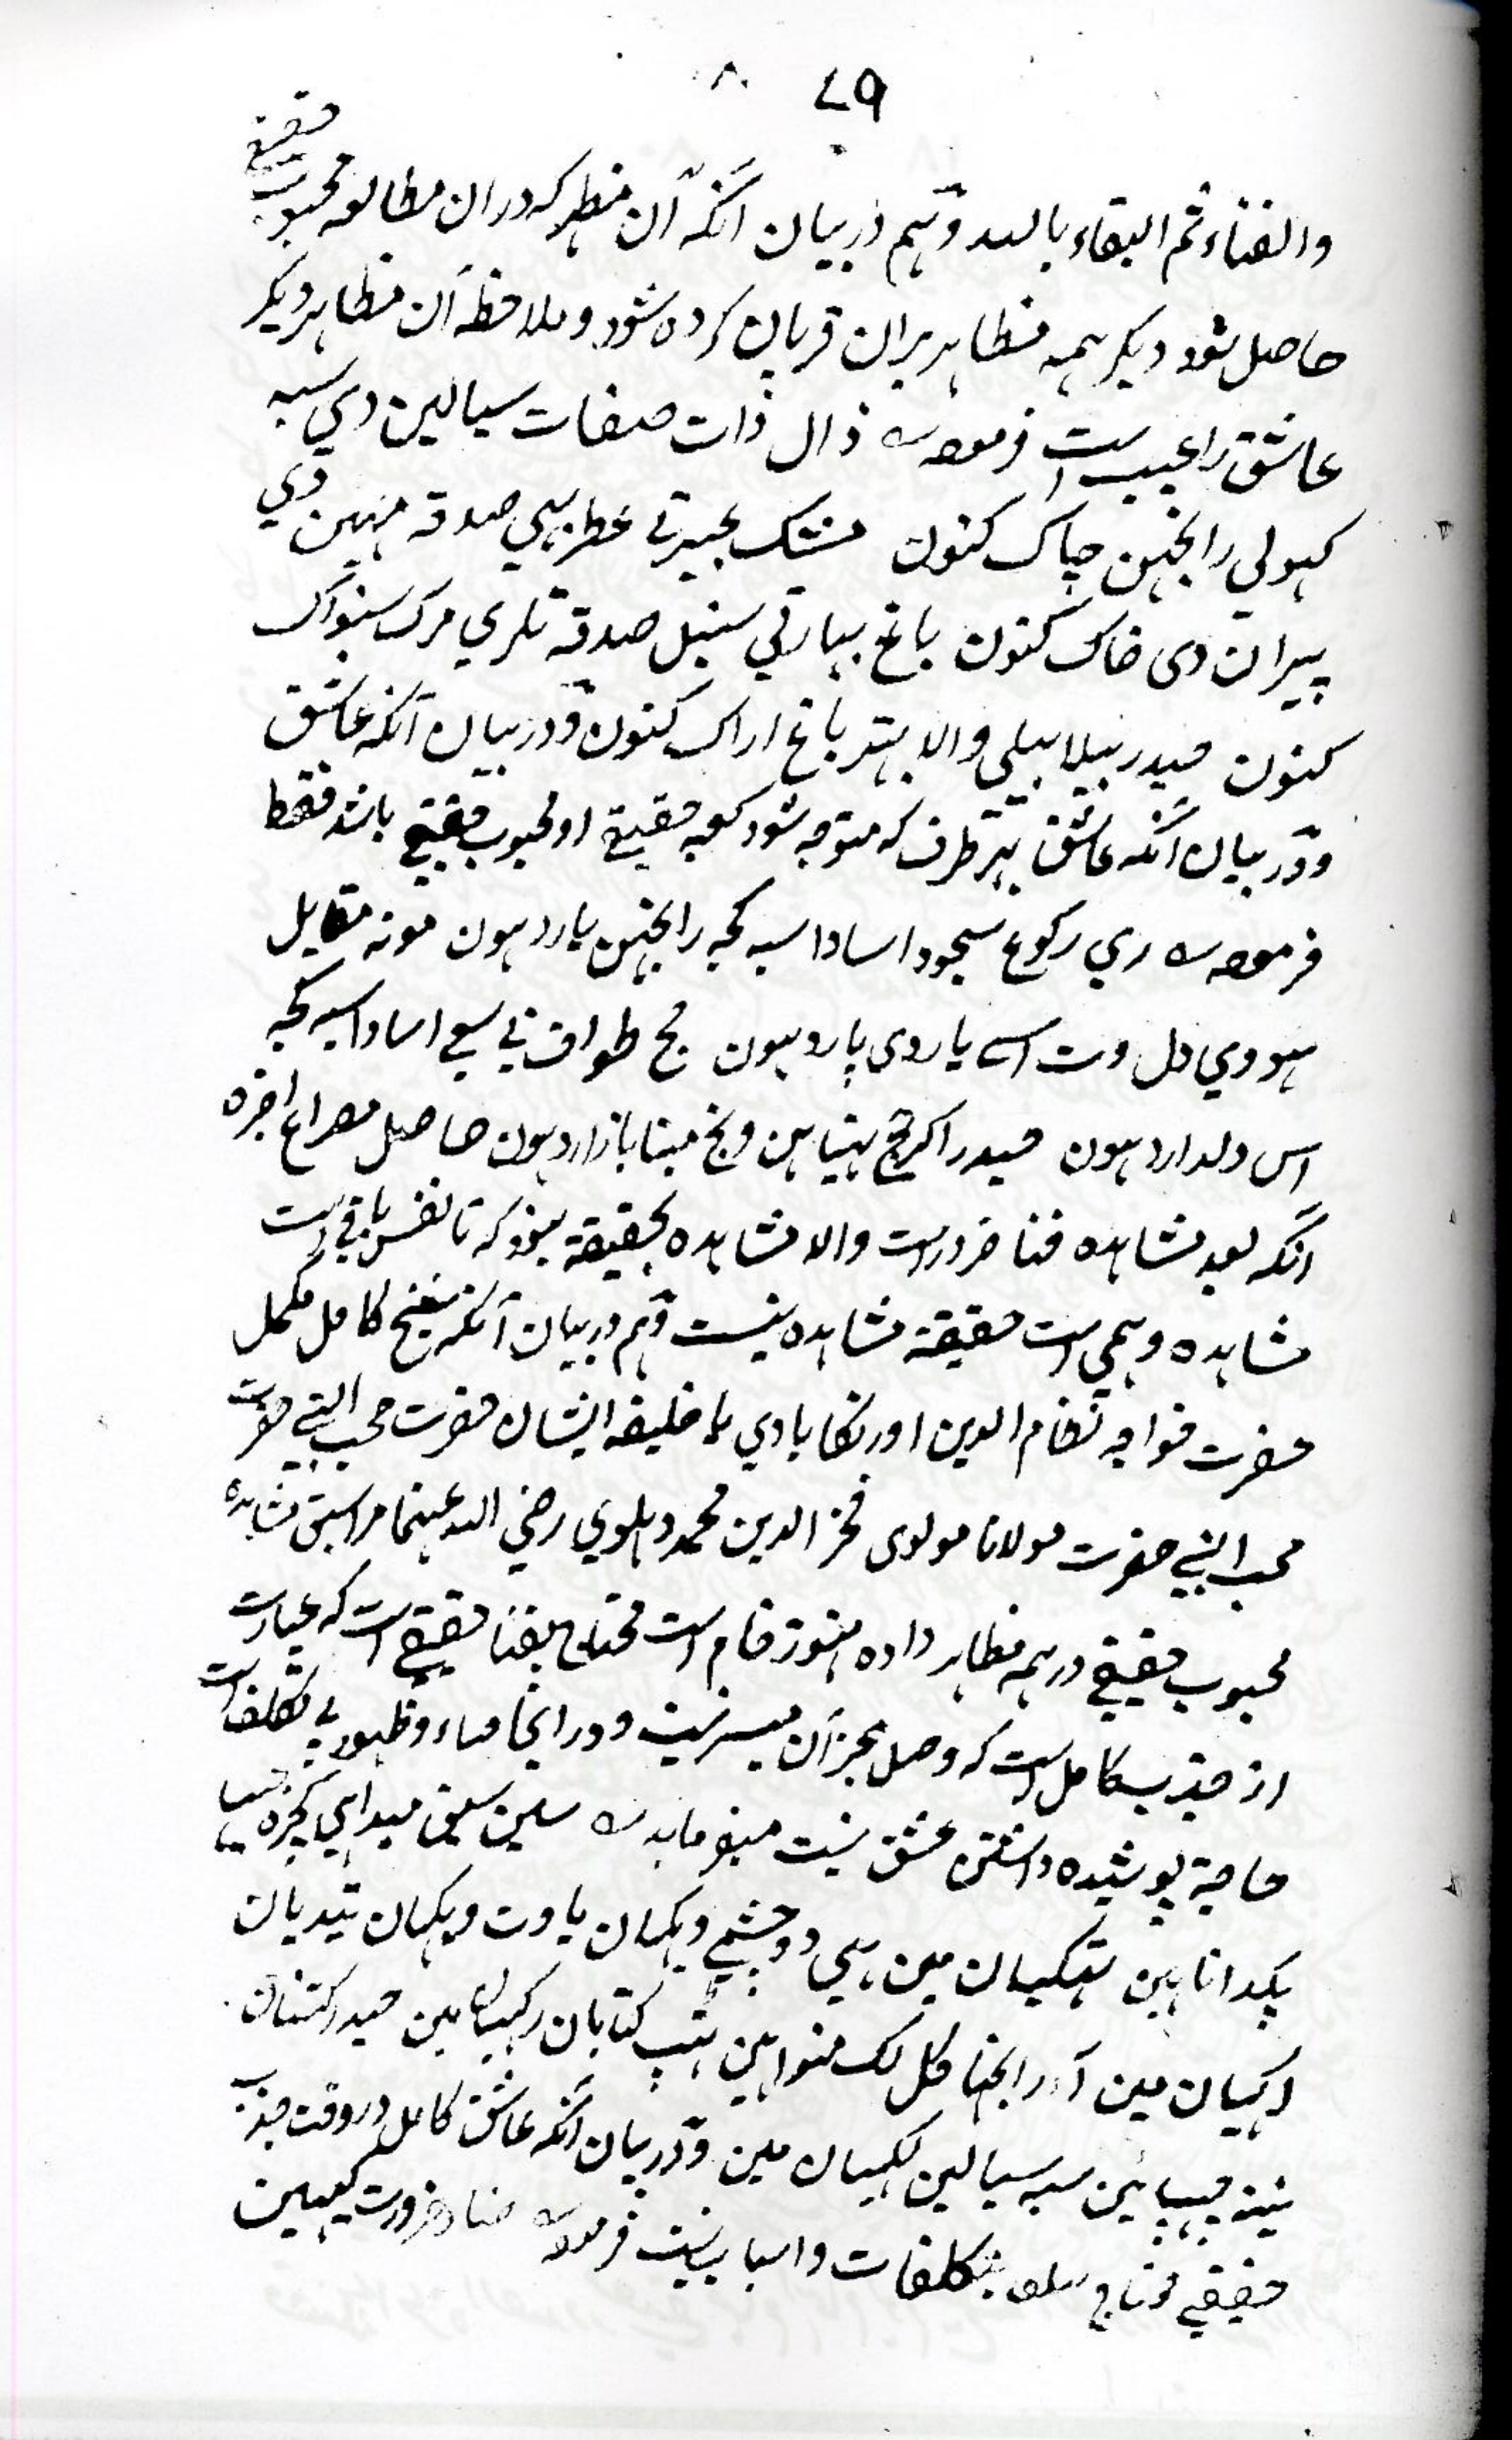 ۷۹
حقیقی
والفناء ثم البقاء بالله وهم در بیان آنکه آن مظهر که دران مطالعه محبوب
حاصل شود دیگر همه مظاهر بران قربان کرده شود و ملاحظه آن مظاهر دیگر
عاشق را عیب است فرموده ذال ذات صفات سیالین دی سبه
کهولی رانجهن چاک کنون مشک عبیر تی عطر بهی صدقه مهین دی
پیران دی خاک کنون باغ بهار تی سنبل صدقه تلری مرک سنواک
کنون حیدر بیلا بیلی والا بهتر باغ اراک کنون ودر بیان آنکه عاشق
ودر بیان آنکه عاشق بهر طرف که متوجه شود کعبه حقیقی او محبوب حقیقی باشد فقط
فرموده ری رکوع سجود اسادا سبه کجه رانجهن یار دهون مونه مقابل
هووی دل وت اسے یار دی پار دهون حج طواف تی سعی اسادا سبه کجه
اس دلدار دهون حیدر اکثر حج هتیاهن ونج مینا بازار دهون حاصل مصراع اخره
آنکه بعد مشاهده فنا ضرور است والا مشاهده بحقیقة نبود که تا نفس باقی است
مشاهده وهمی است حقیقة مشاهده نیست وهم در بیان آنکه شیخ کامل مکمل
حضرت خواجه نظام الدین اورنکابادی یا خلیفه ایشان حضرت محب النبی حضرت
محب النبی حضرت مولانا مولوی فخر الدین محمد دهلوی رضی الله عنهما مرا سبق مشاهده
محبوب حقیقی در همه مظاهر داده هنوز خام است محتاج بفنا حقیقی است که عبارت
از جذب کامل است که وصل بجز آن میسر نیست و در اینجا صاء وظهور بی تکلفات
حاجة پوشیده داشتن عشق نیست میفرماید سین سبق میدا هی کجره
پکدانا هین تهکیان مین هی دو چشمی ویکهان یا وت ویکهان تیدیان
اکهیان مین آ رانجهنا کل لک منواهین تهپ کتابان رکهیان مین حیدر کتنان
نینه چهپائین سبه سیالین لکهیان مین ودر بیان آنکه عاشق کامل در وقت جذب
حقیقی محتاج تکلفات واسباب نیست فرموده ضاد ضرورت کیهین